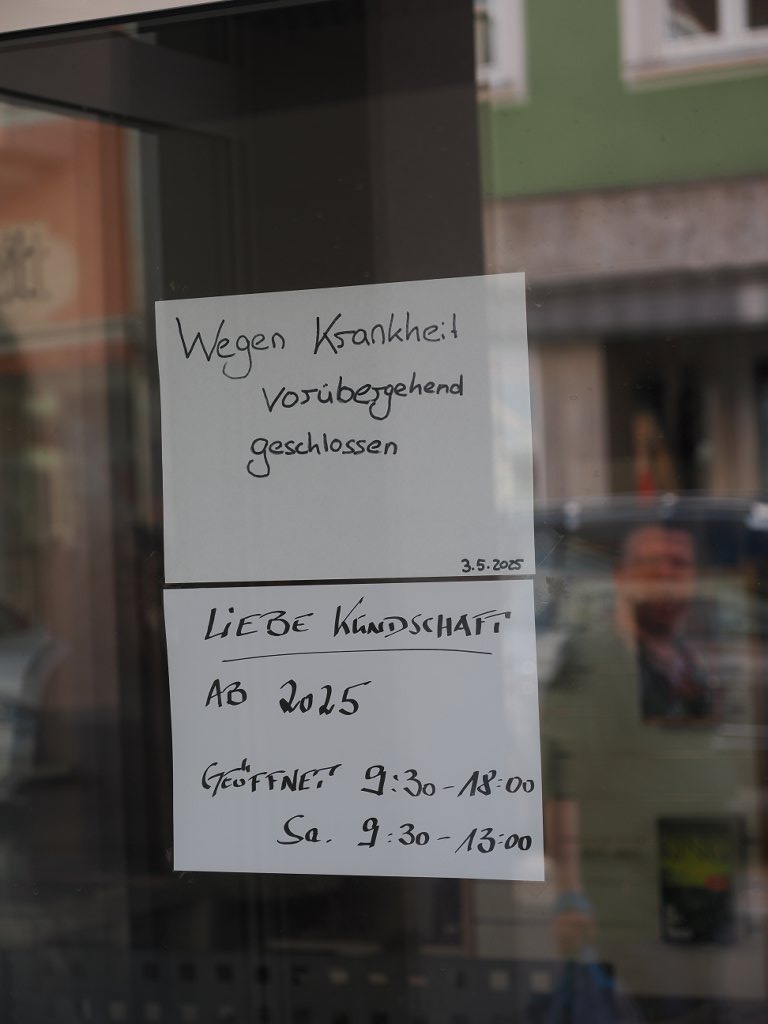 Wegen Krankheit
vorübergehend
geschlossen
3.5.2025
LIEBE KUNDSCHAFT
AB 2025
GEÖFFNET 9:30-18:00
Sa. 9:30-13:00